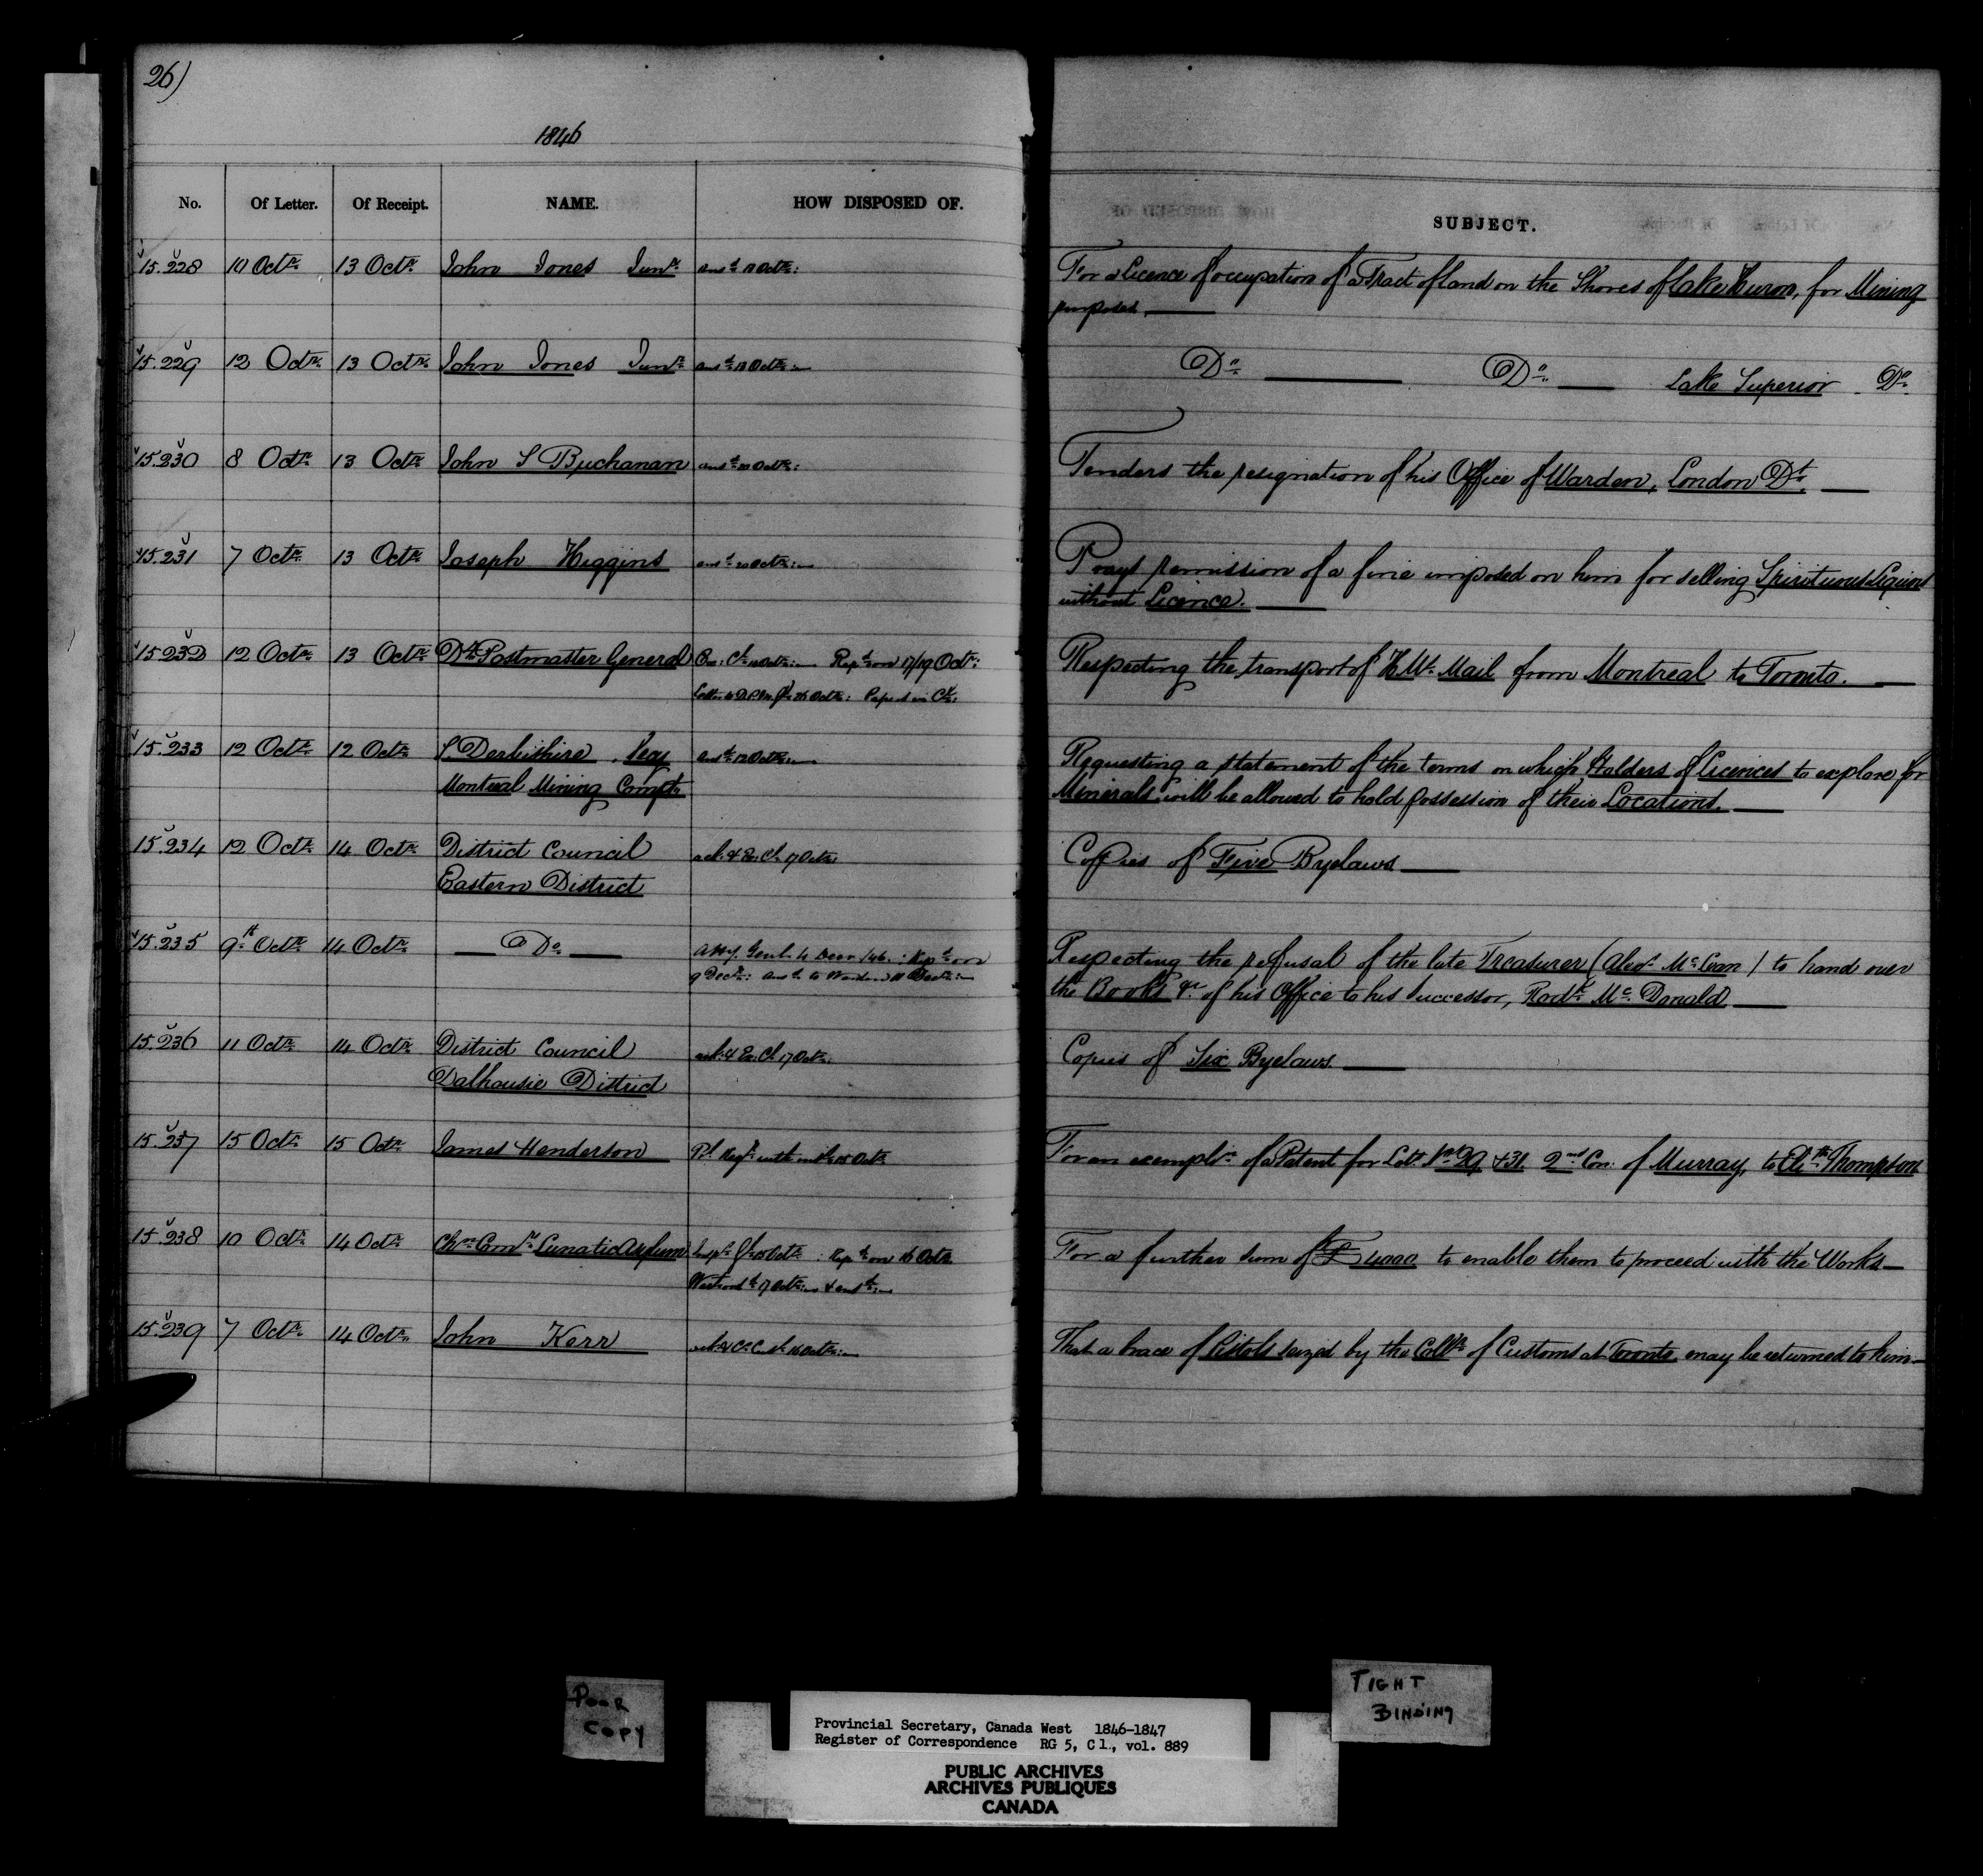 26)
1846
No. Of Letter. Of Receipt. NAME. HOW DISPOSED OF. SUBJECT.
15.228 10 Octr. 13 Octr. John Jones Junr. ansd. 13 Octr: For a Licence of occupation of a Tract of Land on the Shores of Lake Huron, for Mining
purposes
15.229 12 Octr. 13 Octr. John Jones Junr. ansd. 13 Octr: Do. Do. Lake Superior Do.
15.230 8 Octr. 13 Octr. John S Buchanan ansd. 20 Octr: Tenders the resignation of his Office of Warden, London Dt.
15.231 7 Octr. 13 Octr. Joseph Higgins ansd. 20 Octr: Prays remission of a fine imposed on him for selling Spirituous Liquors
without Licence.
15232 12 Octr. 13 Octr. Dy. Postmaster General Ex: Cl. Octr: Repd. on 17/19 Octr: Respecting the transport of H. Ws. Mail from Montreal to Toronto.
Letter to D.P.M.Gl. 26 Octr: Papers in Cl:
15.233 12 Octr. 12 Octr. S. Derbishire, Secy ansd. 12 Octr: Requesting a statement of the terms on which Holders of Licences to explore for
Montreal Mining Compy. Minerals will be allowed to hold possession of their Locations.
15.234 12 Octr. 14 Octr. District Council ack. & Ex. Cl. 17 Octr. Copies of Five Byelaws
Eastern District
15.235 9th. Octr. 14 Octr. Do. Atty. Genl. 4 Decr /46.: Repd. on Respecting the refusal of the late Treasurer (Alexr. McLean) to hand over
9 Decr: ansd. to Warden 11 Decr: the Books &c. of his Office to his Successor, Rodk. Mc. Donald
15.236 11 Octr. 14 Octr. District Council ack. & Ex. Cl. 17 Octr. Copies of Six Byelaws.
Dalhousie District
15.237 15 Octr. 15 Octr. James Henderson Pl. Regr. with 15 Octr. For an exempln. of a Patent for Lots Nos. 29 & 31. 2nd Con: of Murray, to Elizth. Thompson
15.238 10 Octr. 14 Octr. Chn. Comrs. Lunatic Asylum Inspr. Gl. 15 Octr: Repd. on 16 Octr. For a further sum of £4000 to enable them to proceed with the Works
Warrant 17 Octr: & ansd:
15.239 7 Octr. 14 Octr. John Kerr 16 Octr: That a brace of Pistols seized by the Collr. of Customs at Toronto may be returned to him
POOR
COPY
TIGHT
BINDING
Provincial Secretary, Canada West 1846-1847
Register of Correspondence RG 5, C 1., vol. 889
PUBLIC ARCHIVES
ARCHIVES PUBLIQUES
CANADA